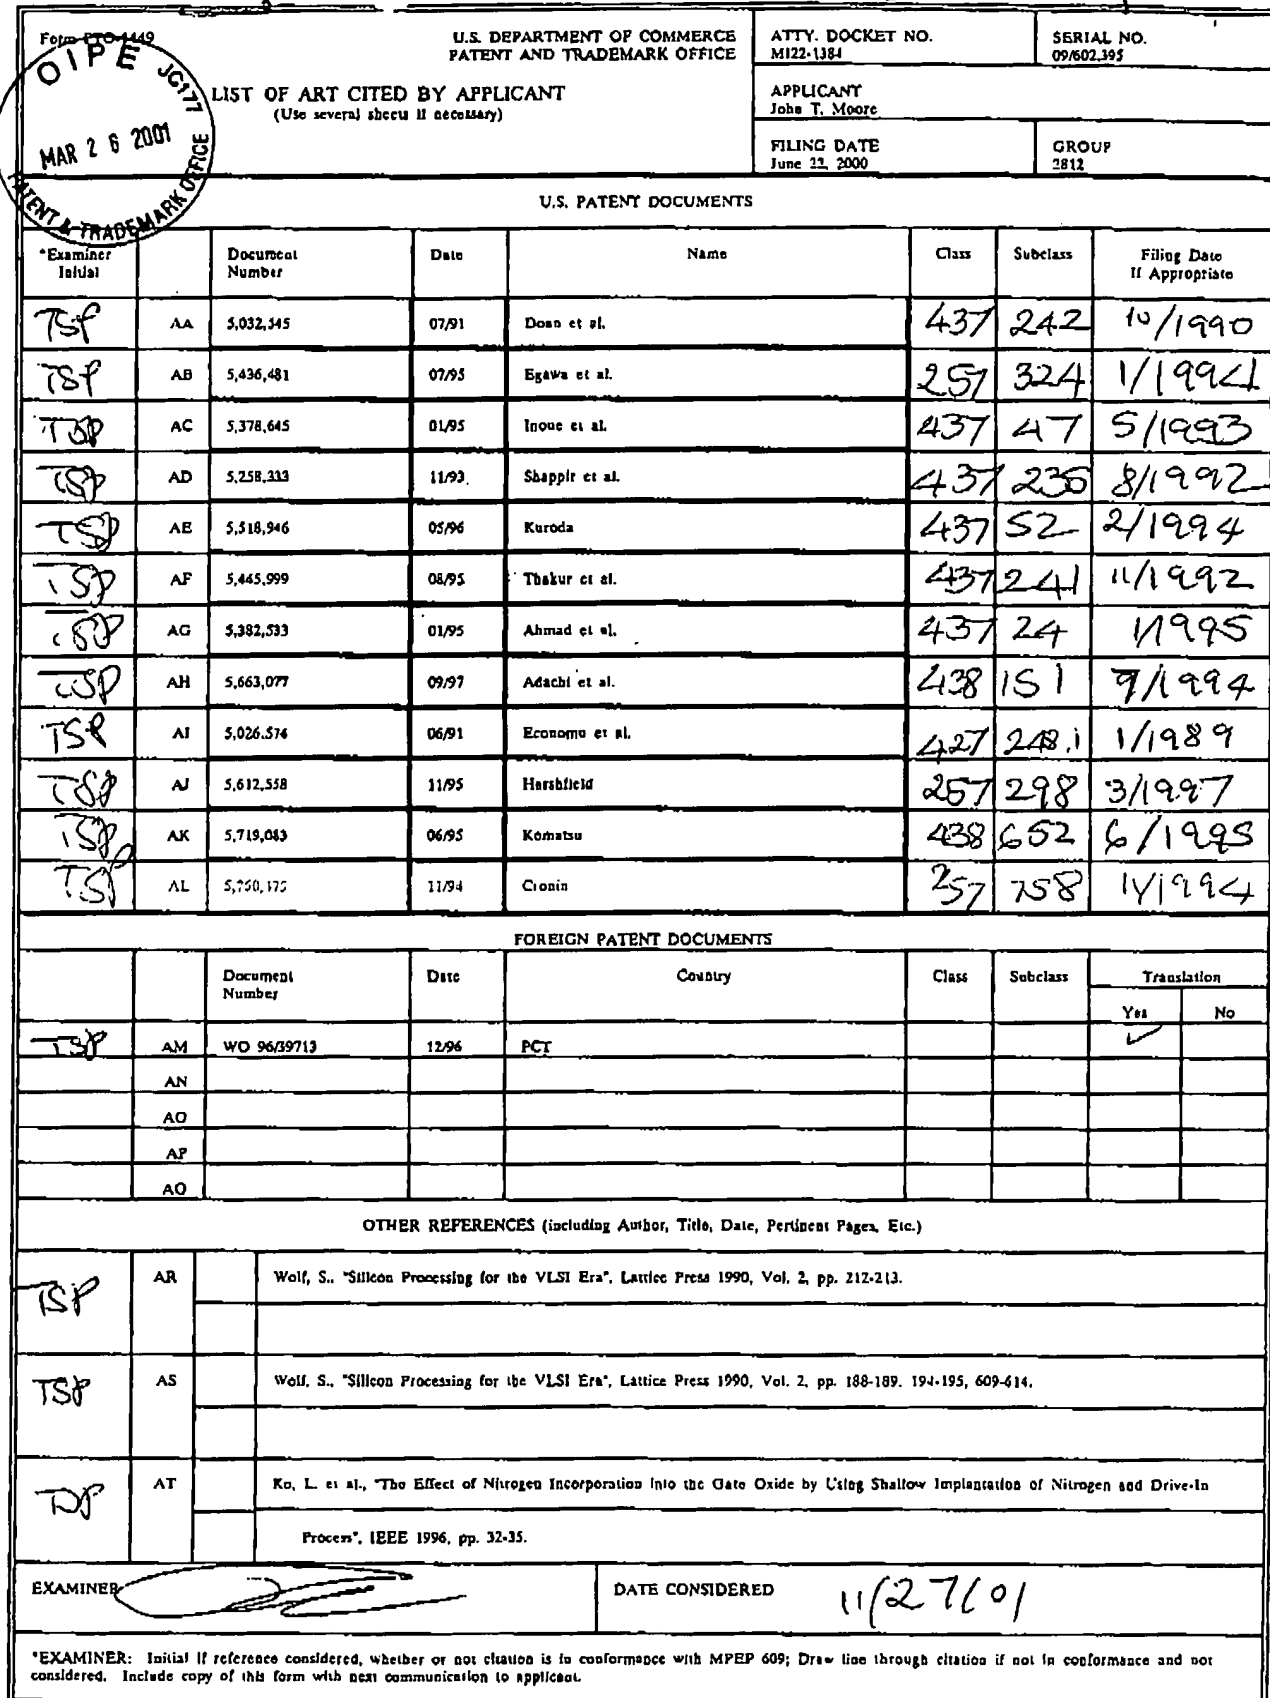 Form PTO-1449
U.S. DEPARTMENT OF COMMERCE
PATENT AND TRADEMARK OFFICE
ATTY. DOCKET NO.
MI22-1384
SERIAL NO.
09/602,395
OIPE JC177
MAR 26 2001
PATENT & TRADEMARK OFFICE
LIST OF ART CITED BY APPLICANT
(Use several sheets if necessary)
APPLICANT
John T. Moore
FILING DATE
June 22, 2000
GROUP
2812
U.S. PATENT DOCUMENTS
*Examiner Initial Document Number Date Name Class Subclass Filing Date If Appropriate
TSP AA 5,032,545 07/91 Doan et al. 437 242 10/1990
TSP AB 5,436,481 07/95 Egawa et al. 257 324 1/1994
TSP AC 5,378,645 01/95 Inoue et al. 437 47 5/1993
TSP AD 5,258,333 11/93 Shappir et al. 437 235 8/1992
TSP AE 5,518,946 05/96 Kuroda 437 52 2/1994
TSP AF 5,445,999 08/95 Thakur et al. 437 241 11/1992
TSP AG 5,382,533 01/95 Ahmad et al. 437 24 1/1995
TSP AH 5,663,077 09/97 Adachi et al. 438 151 9/1994
TSP AI 5,026,574 06/91 Economu et al. 427 248.1 1/1989
TSP AJ 5,612,558 11/95 Harshfield 257 298 3/1997
TSP AK 5,719,083 06/95 Komatsu 438 652 6/1995
TSP AL 11/94 Cronin 257 758 11/1994
FOREIGN PATENT DOCUMENTS
Document Number Date Country Class Subclass Translation
Yes No
TSP AM WO 96/39713 12/96 PCT ✓
AN
AO
AP
AQ
OTHER REFERENCES (including Author, Title, Date, Pertinent Pages, Etc.)
TSP AR Wolf, S., "Silicon Processing for the VLSI Era", Lattice Press 1990, Vol. 2, pp. 212-213.
TSP AS Wolf, S., "Silicon Processing for the VLSI Era", Lattice Press 1990, Vol. 2, pp. 188-189. 194-195, 609-614.
TSP AT Ko, L. et al., "The Effect of Nitrogen Incorporation into the Gate Oxide by Using Shallow Implantation of Nitrogen and Drive-In
Process", IEEE 1996, pp. 32-35.
EXAMINER
DATE CONSIDERED 11/27/01
*EXAMINER: Initial if reference considered, whether or not citation is in conformance with MPEP 609; Draw line through citation if not in conformance and not
considered. Include copy of this form with next communication to applicant.